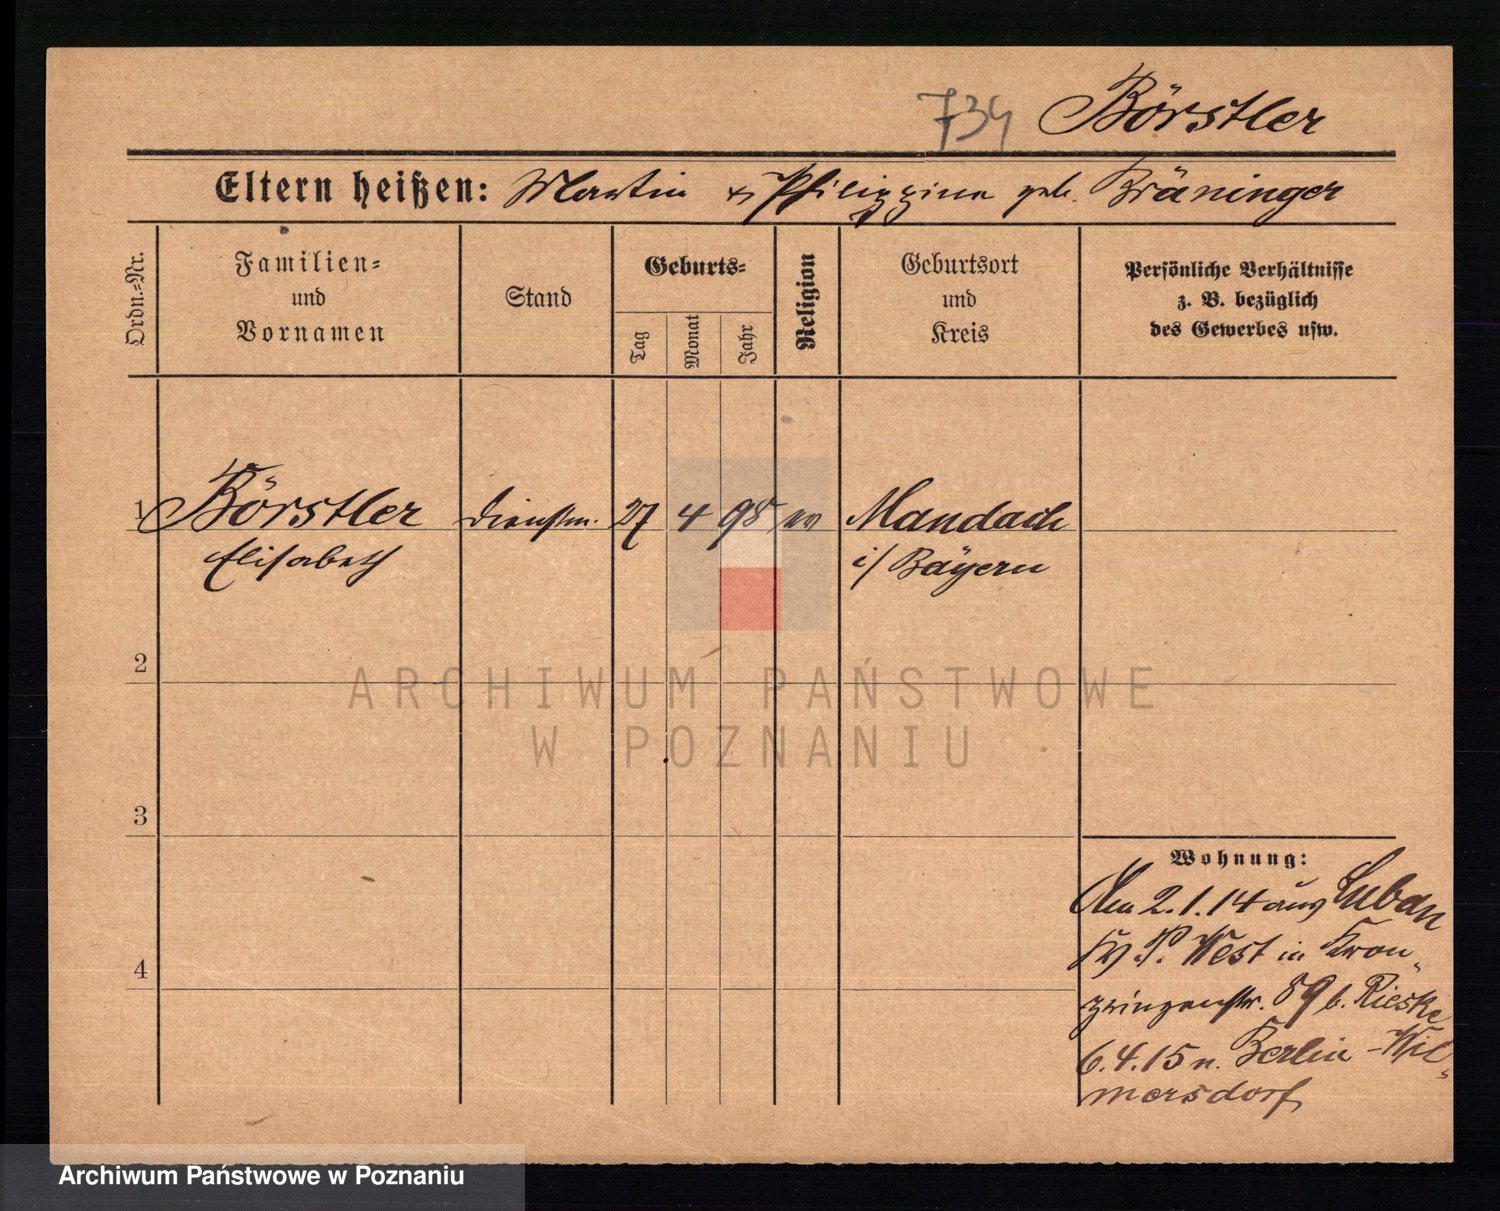 734 Börstler
Eltern heißen: Martin u. Philippine geb. Bräninger
Ordn.-Nr.
Familien-
und
Vornamen
Stand
Geburts-
Tag
Monat
Jahr
Religion
Geburtsort
und
Kreis
Persönliche Verhältnisse
z. B. bezüglich
des Gewerbes usw.
1 Börstler Dienstm. 27 4 98 ev Mandach
Elisabeth i/ Bayern
2
ARCHIWUM PAŃSTWOWE
W POZNANIU
3
Wohnung:
2.1.14 aus Luban
Kr P. West in Kron-
prinzenstr. 89 b. Rieske
6.4.15 n. Berlin-Wil-
mersdorf
4
Archiwum Państwowe w Poznaniu